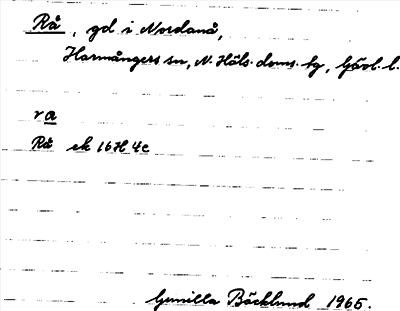 Rå, gd i Nordanå,
Harmångers sn, N. Häls. doms. tg, Gävl. l.
ra
Rå ek 16H 4c
Gunilla Bäcklund 1965.